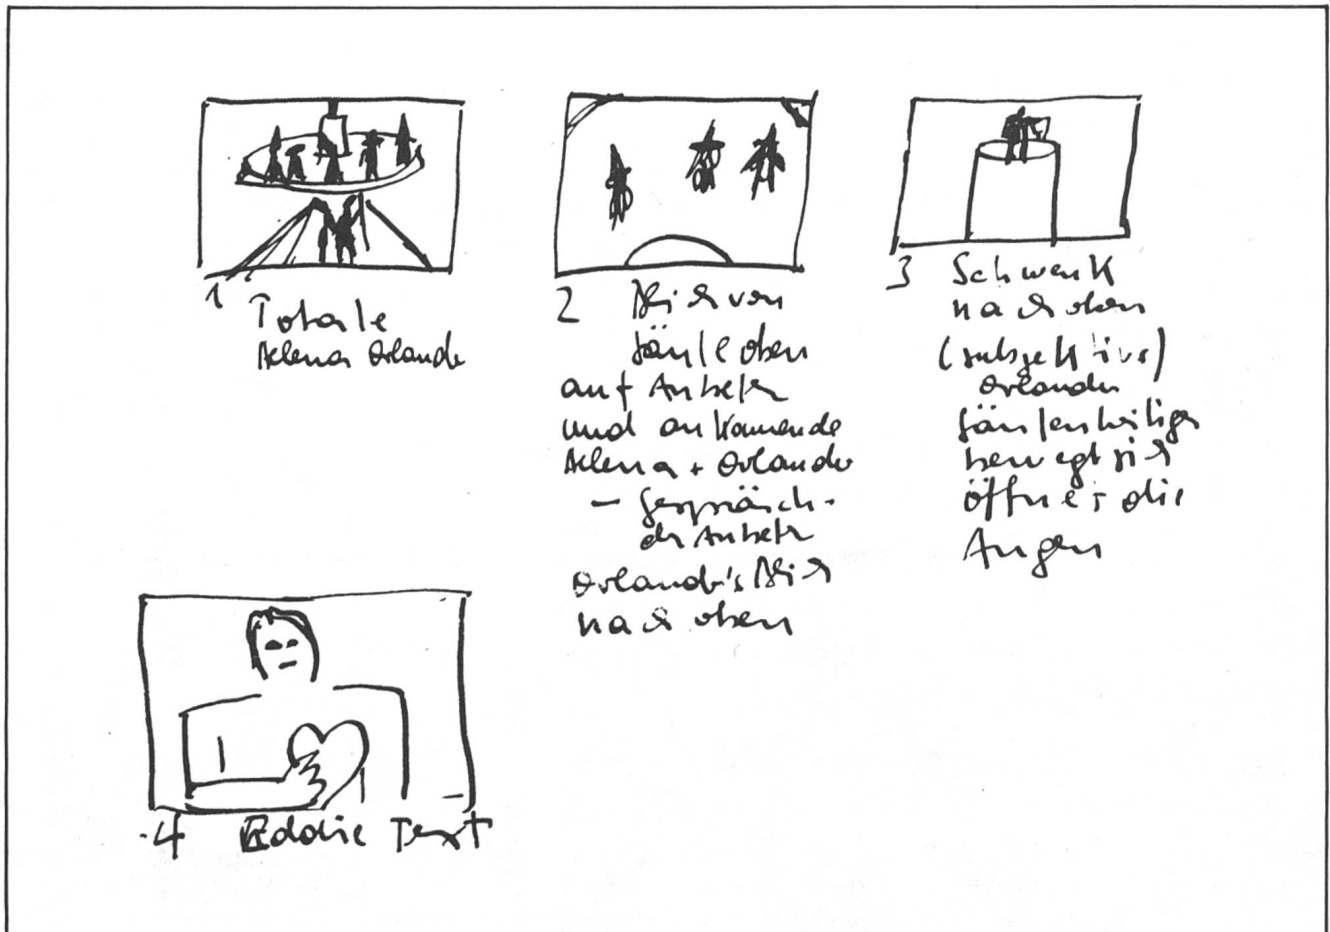 1 Totale
Helena Orlando
2 Blick von
Säule oben
auf Anbeter
und ankommende
Helena + Orlando
– Gespräch –
der Anbeter
Orlando's Blick
nach oben
3 Schwenk
nach oben
(subjektive)
Orlando
Säulenheiliger
bewegt sich
öffnet die
Augen
4 Eddie Text